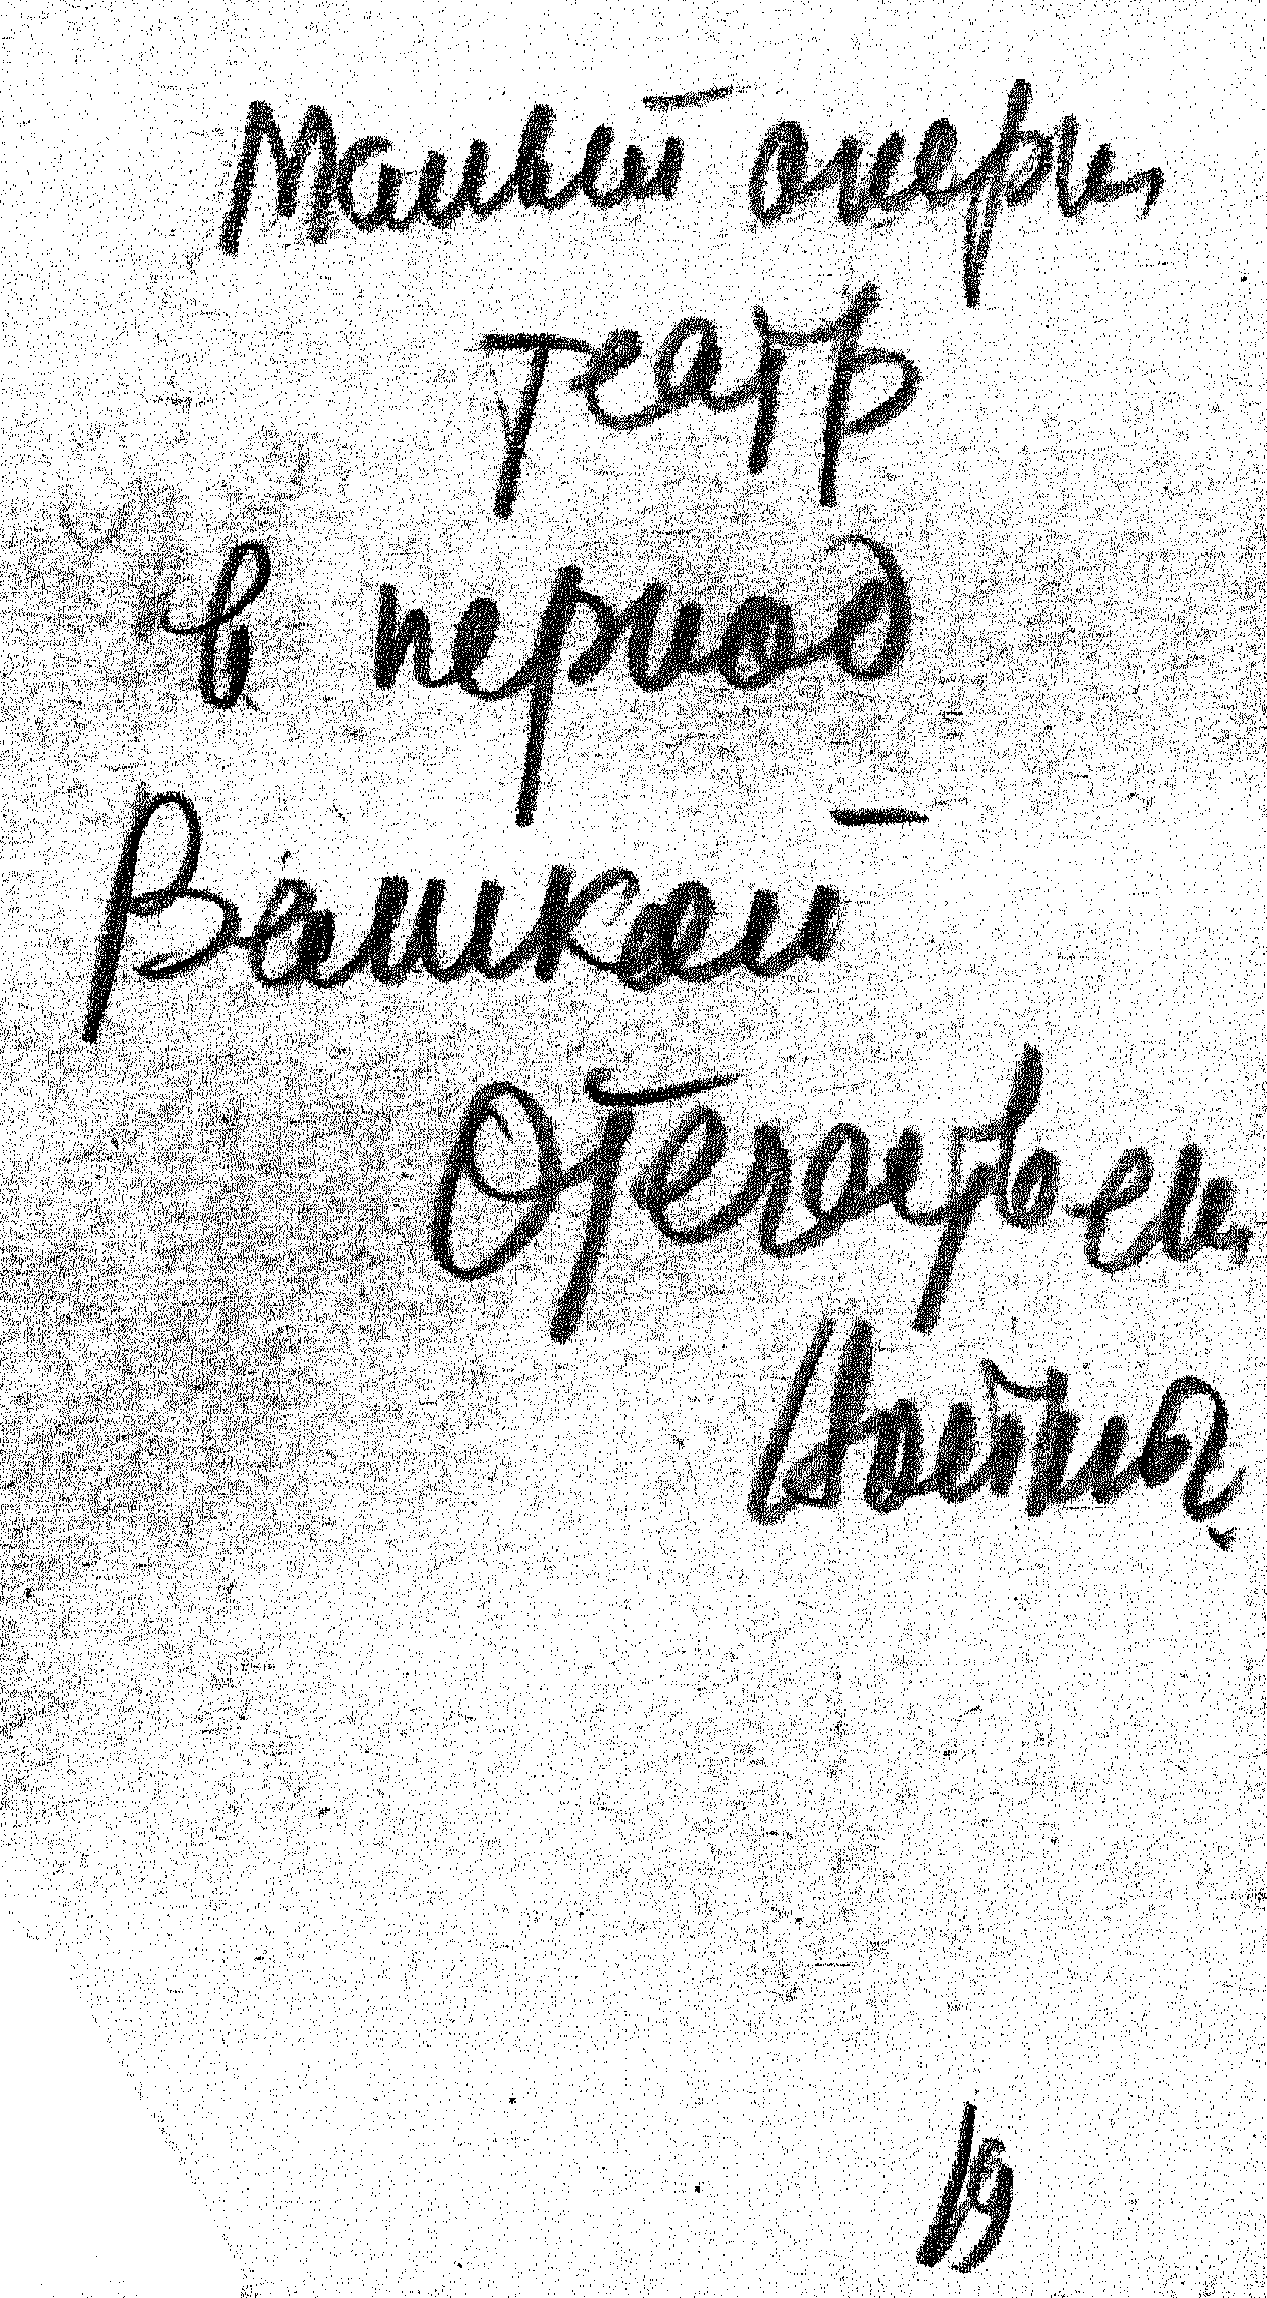 Малый оперн.
театр
в период
Великой
Отечествен.
войны
19